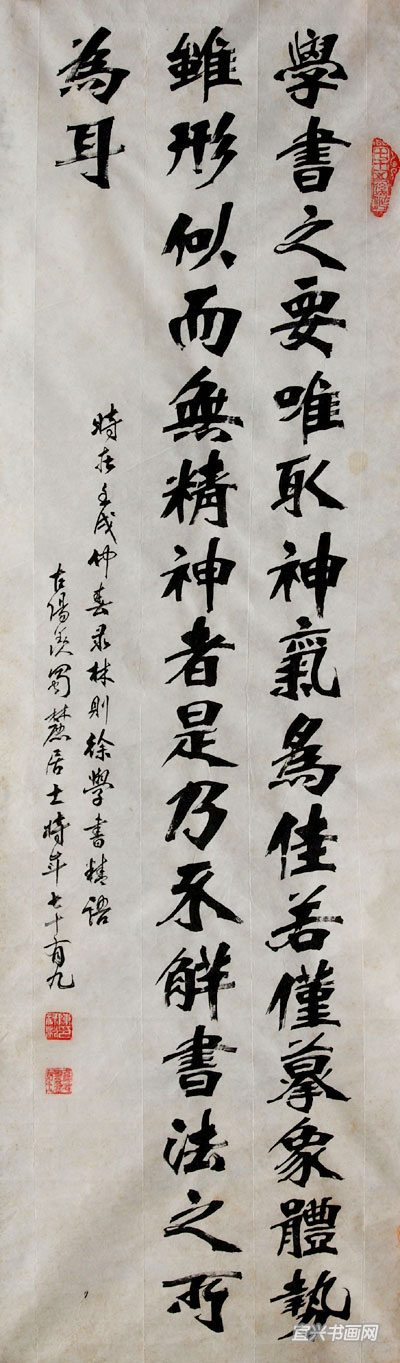 學書之要唯取神氣為佳若僅摹象體勢
雖形似而無精神者是乃不解書法之所
為耳
時在壬戌仲春录林則徐學書精語
古陽羨蜀麓居士時年七十有九
宜兴书画网